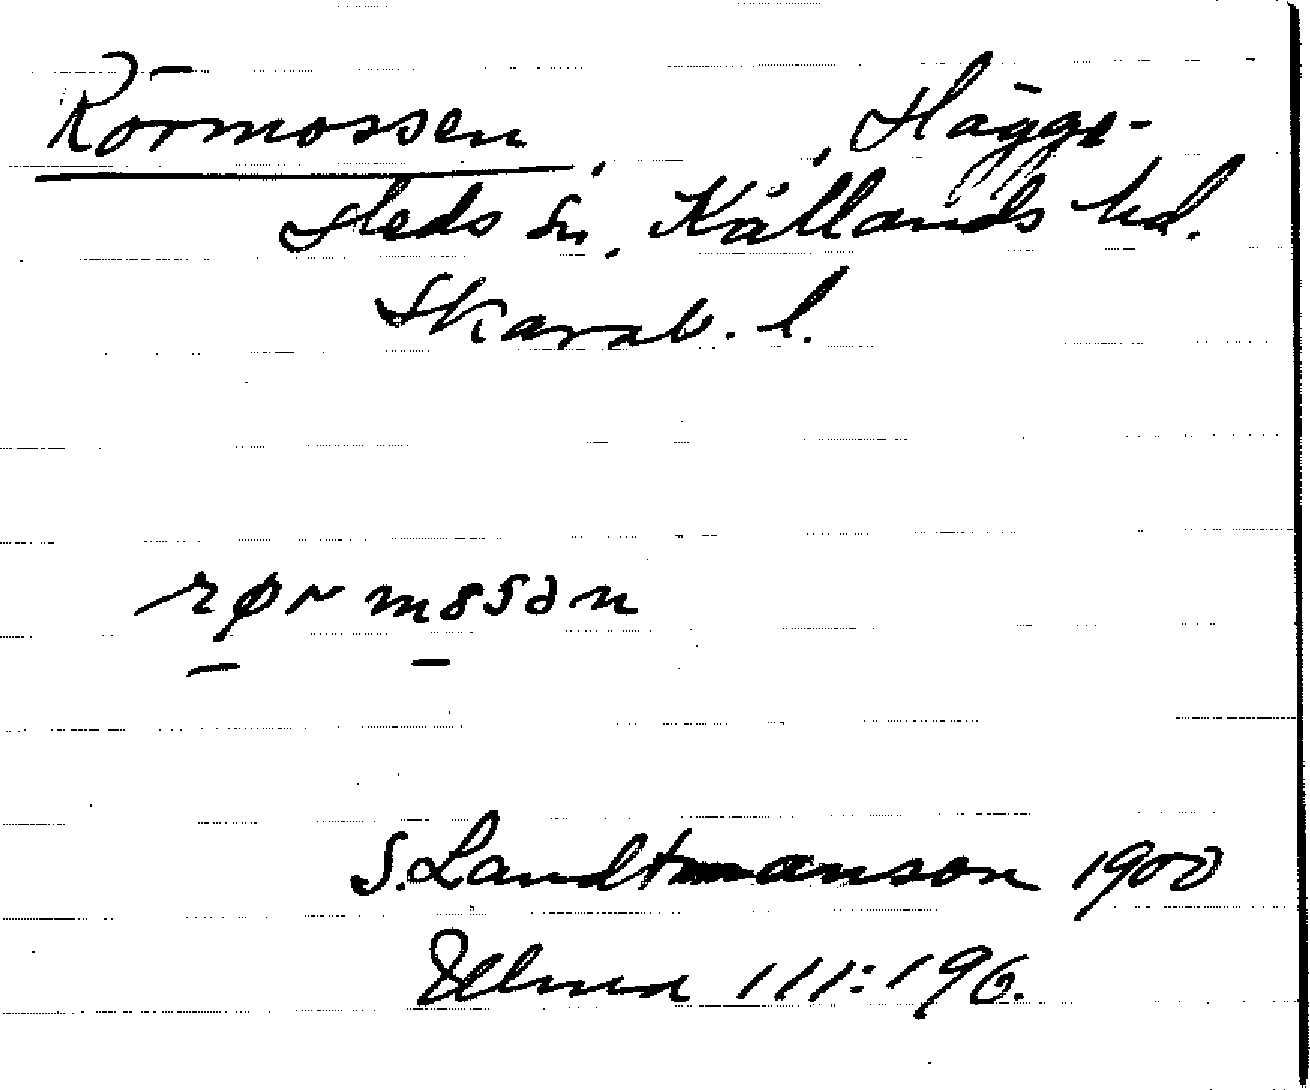 Rörmossen, , Hägge-
sleds sn, Kållands hd.
Skarab. l.
rørmssən
S. Landtmanson 1900
111:196.